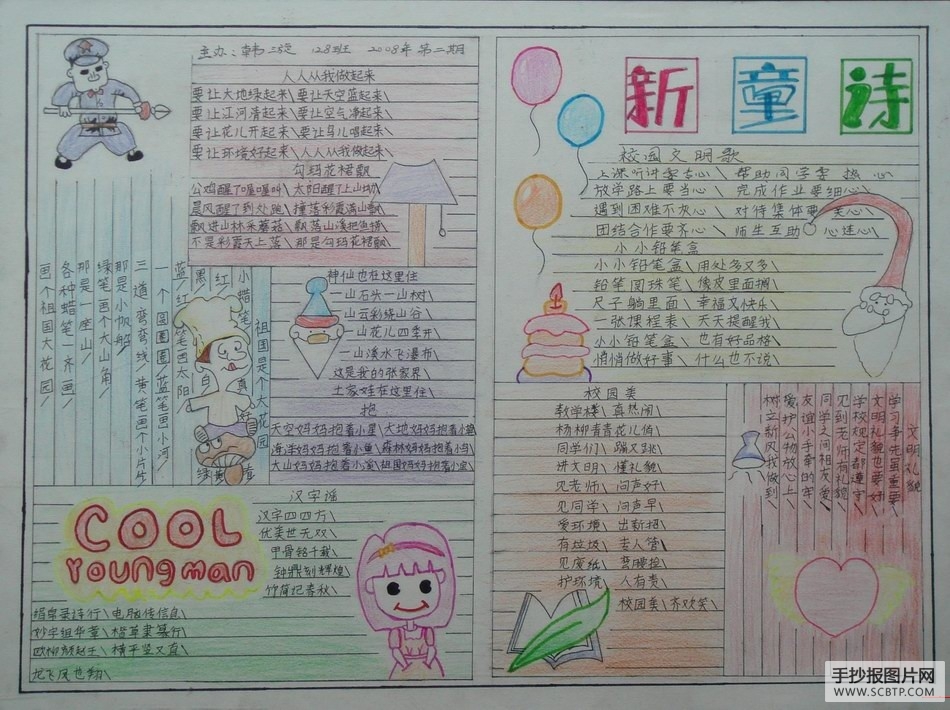 主办：韩 128班 2008年 第二期
人人从我做起来
要让大地绿起来\要让天空蓝起来\
要让江河清起来\要让空气净起来\
要让花儿开起来\要让鸟儿唱起来\
要让环境好起来\人人从我做起来\
勾玛花裙飘
公鸡醒了喔喔叫\太阳醒了上山坳\
晨风醒了到处跑\撞落彩霞满山飘\
飘进山林采蘑菇\飘落山溪把鱼捞\
不是彩霞天上落\那是勾玛花裙飘\
小蜡笔\祖国是个大花园
红
黑
蓝\红笔画太阳
一个圆圆圈\蓝笔画小河
三道弯弯线\黄笔画个小片片
那是小帆船\
绿笔画个大山角\
那是一座山\
各种蜡笔一齐画\
画个祖国大花园\
白
真
绿
神仙也在这里住
一山石头一山树\
一山云彩绿山谷\
一山花儿四季开\
一山溪水飞瀑布\
这是我的张家界\
土家娃在这里住\
抱
天空妈妈抱着小星\大地妈妈抱着小草
海洋妈妈抱着小鱼\森林妈妈抱着小鸟
大山妈妈抱着小溪\祖国妈妈抱着小宝
汉字谣
汉字四四方\
优美世无双\
甲骨铭千载\
钟鼎刻辉煌\
竹简记春秋\
COOL
Young man
绢帛录诗行\电脑传信息\
妙字组华章\楷草隶篆行\
欧柳颜赵王\横平竖又直\
龙飞凤也翔\
新童诗
校园文明歌
上课听讲要专心\帮助同学要热心
放学路上要当心\完成作业要细心\
遇到困难不灰心\对待集体要关心\
团结合作要齐心\师生互助心连心\
小小铅笔盒
小小铅笔盒\用处多又多\
铅笔圆珠笔\橡皮里面搁\
尺子躺里面\幸福又快乐\
一张课程表\天天提醒我\
小小铅笔盒\也有好品格\
悄悄做好事\什么也不说\
校园美
教学楼\真热闹\
杨柳青青花儿俏\
同学们\蹦又跳\
讲文明\懂礼貌\
见老师\问声好\
见同学\问声早\
爱环境\出新招\
有垃圾\专人管\
见废纸\弯腰捡\
护环境\人有责\
校园美\齐欢笑\
文明礼貌
学习争先最重要\
文明礼貌也要好\
学校规定都遵守\
见到老师有礼貌\
同学之间相友爱\
友谊小手牵的牢\
爱护公物放心上\
树立新风我做到\
手抄报图片网
WWW.SCBTP.COM